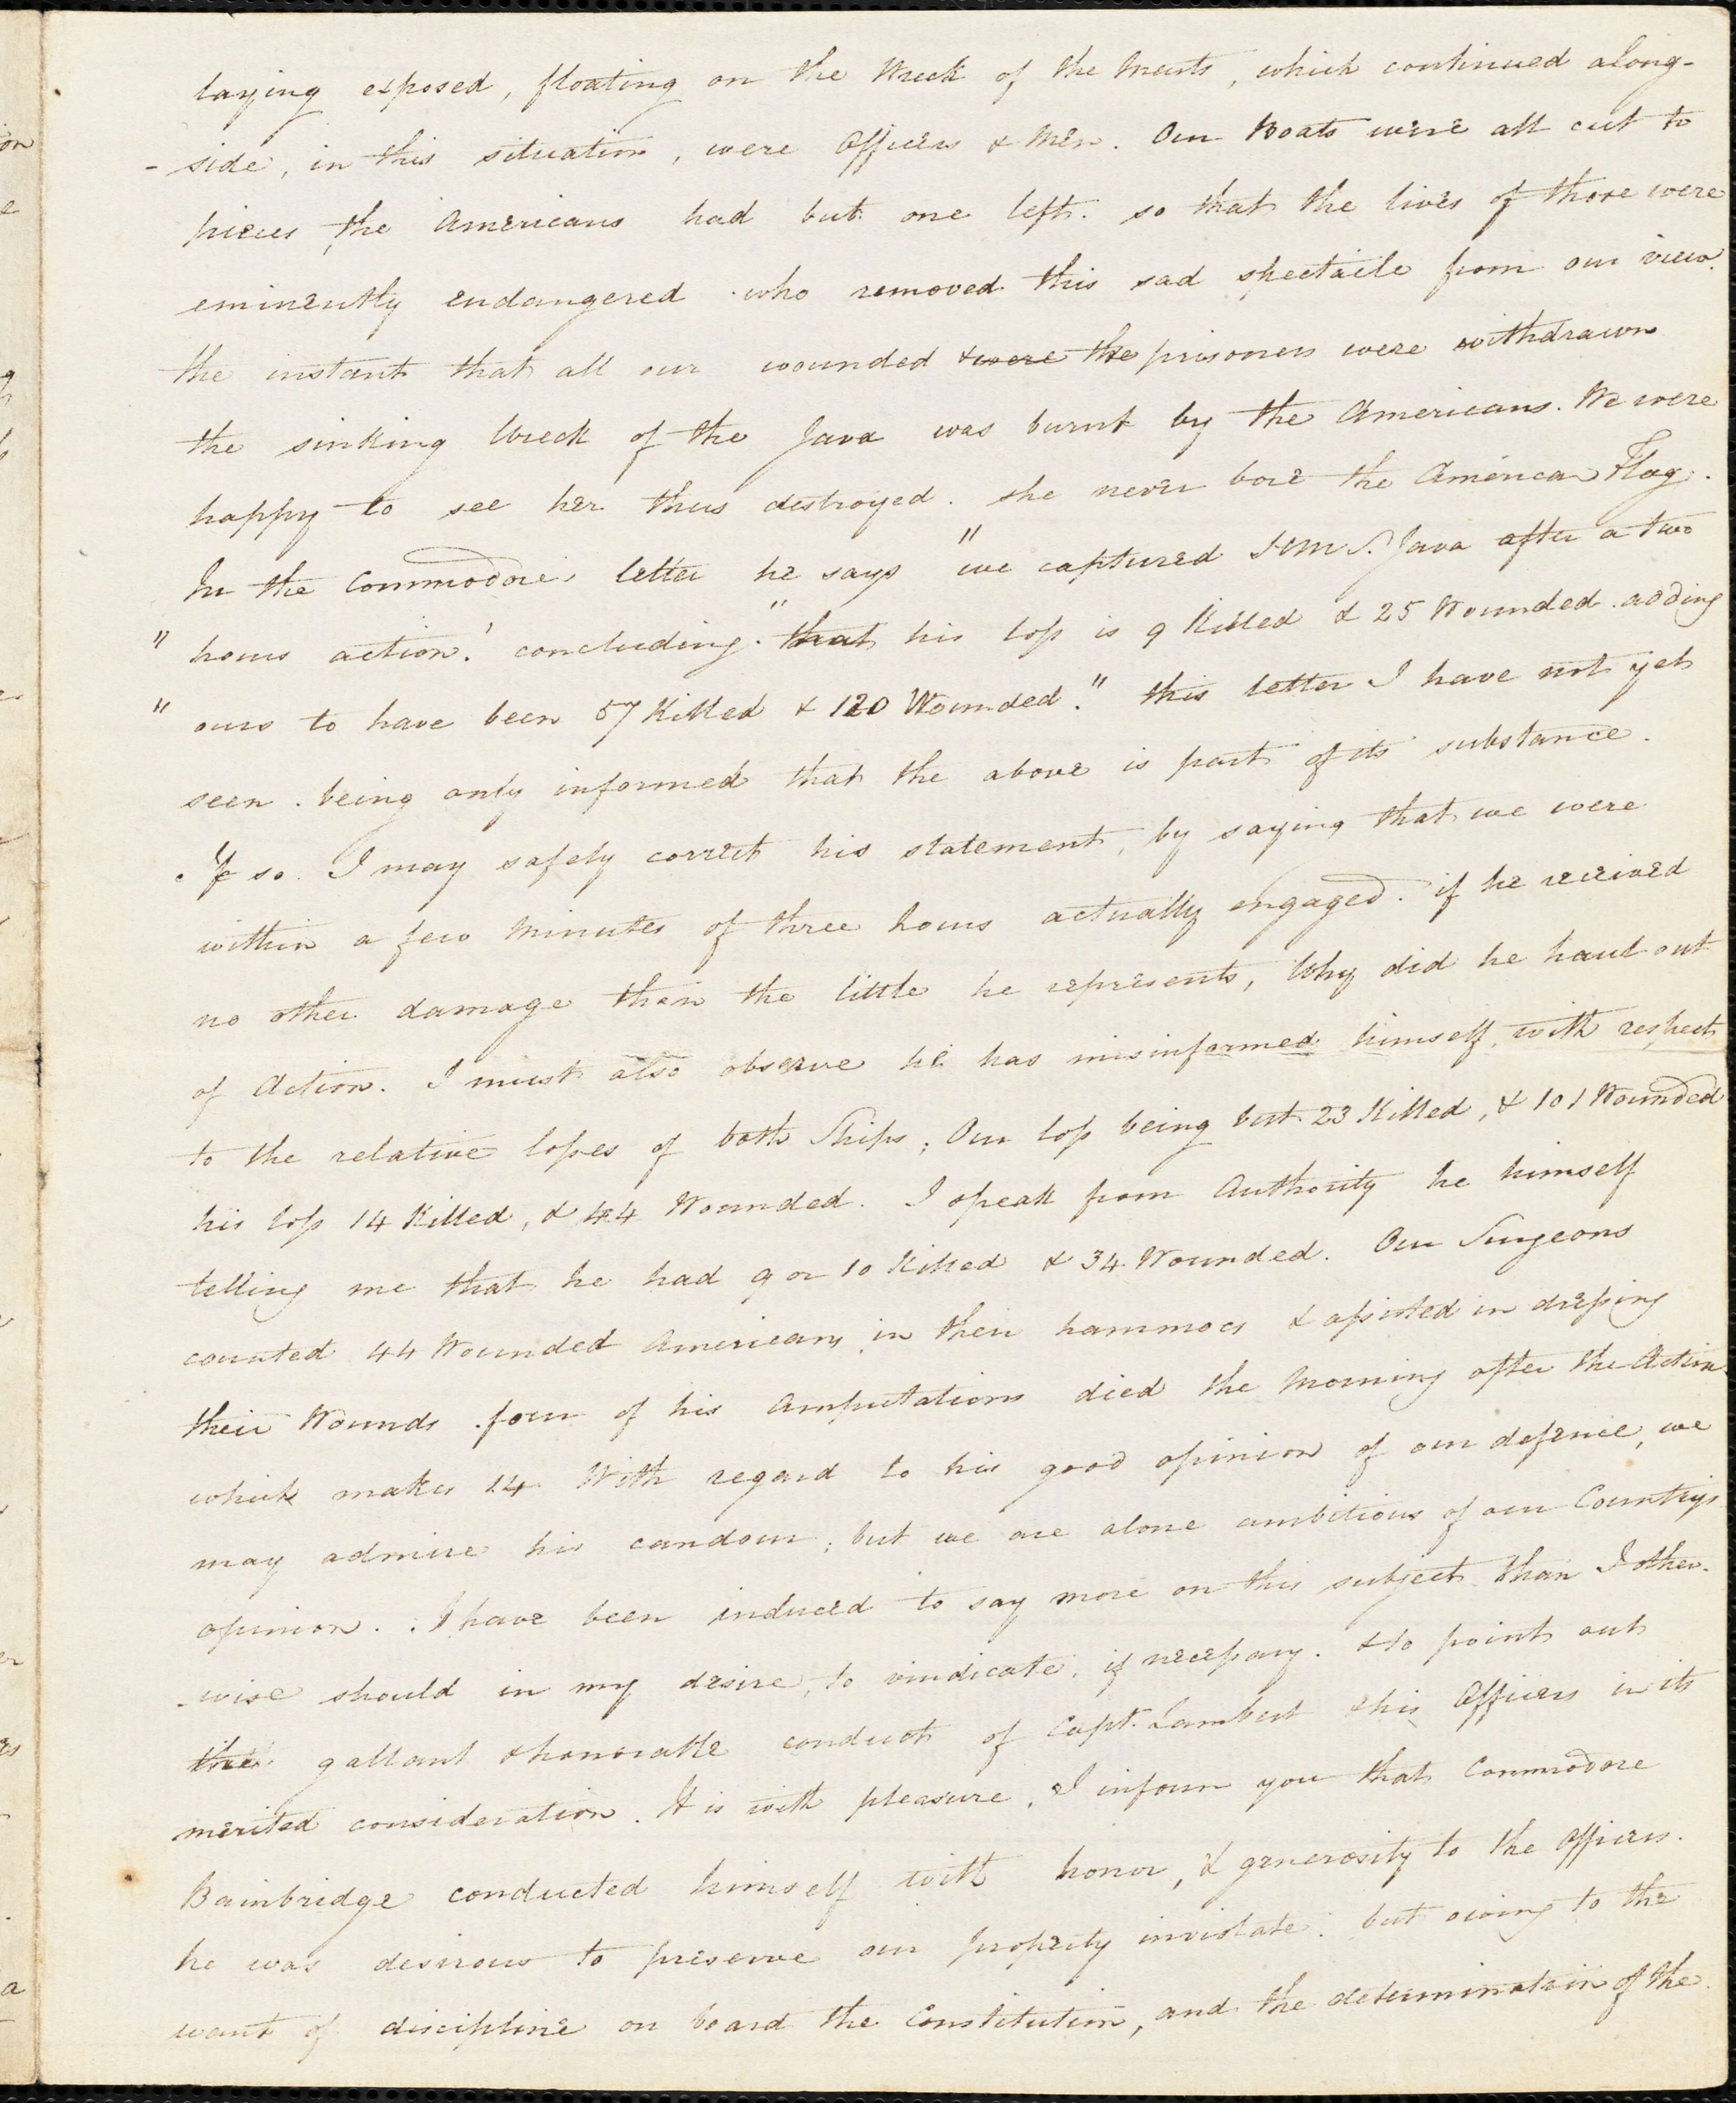 laying exposed, floating on the Wreck of the Masts, which continued along-
- side, in this situation, were Officers & Men. Our Boats were all cut to
pieces the Americans had but one left. so that the lives of those were
eminently endangered who removed this sad spectacle from our view.
the instant that all our wounded & were the prisoners were withdrawn
the sinking Wreck of the Java was burnt by the Americans. We were
happy to see her thus destroyed. she never bore the American Flag.
In the Commodores letter he says "we captured H.M.S. Java after a two
" hours action.' concluding "that his loss is 9 Killed & 25 Wounded. adding
" ours to have been 57 Killed & 120 Wounded." this letter I have not yet
seen. being only informed that the above is part of its substance.
If so. I may safely correct his statement, by saying that we were
within a few Minutes of three hours actually engaged. if he received
no other damage than the little he represents, Why did he haul out
of Action. I must also observe he has misinformed himself, with respect
to the relative losses of both Ships; Our loss being but 23 Killed, & 101 Wounded
his loss 14 Killed, & 44 Wounded. I speak from Authority he himself
telling me that he had 9 or 10 Killed & 34 Wounded. Our Surgeons
counted 44 Wounded Americans in their hammocs & assisted in dressing
their Wounds. four of his Amputations died the Morning after the Action
which makes 14. With regard to his good opinion of our defence, we
may admire his candour; but we are alone ambitious of our Countrys
opinion. I have been induced to say more on this subject than I other-
- wise should in my desire, to vindicate, if necessary. & to point out
the gallant & honorable conduct of Capt. Lambert & his Officers in its
merited consideration. It is with pleasure, I inform you that Commodore
Bainbridge conducted himself with honor, & generosity to the Officers.
he was desirous to preserve our property inviolate. but owing to the
want of discipline on board the Constitution, and the determination of the